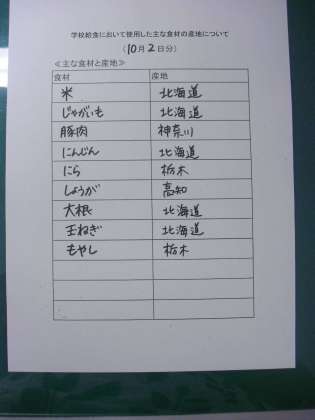 学校給食において使用した主な食材の産地について
(10月2日分)
≪主な食材と産地≫
食材 産地
米 北海道
じゃがいも 北海道
豚肉 神奈川
にんじん 北海道
にら 栃木
しょうが 高知
大根 北海道
玉ねぎ 北海道
もやし 栃木